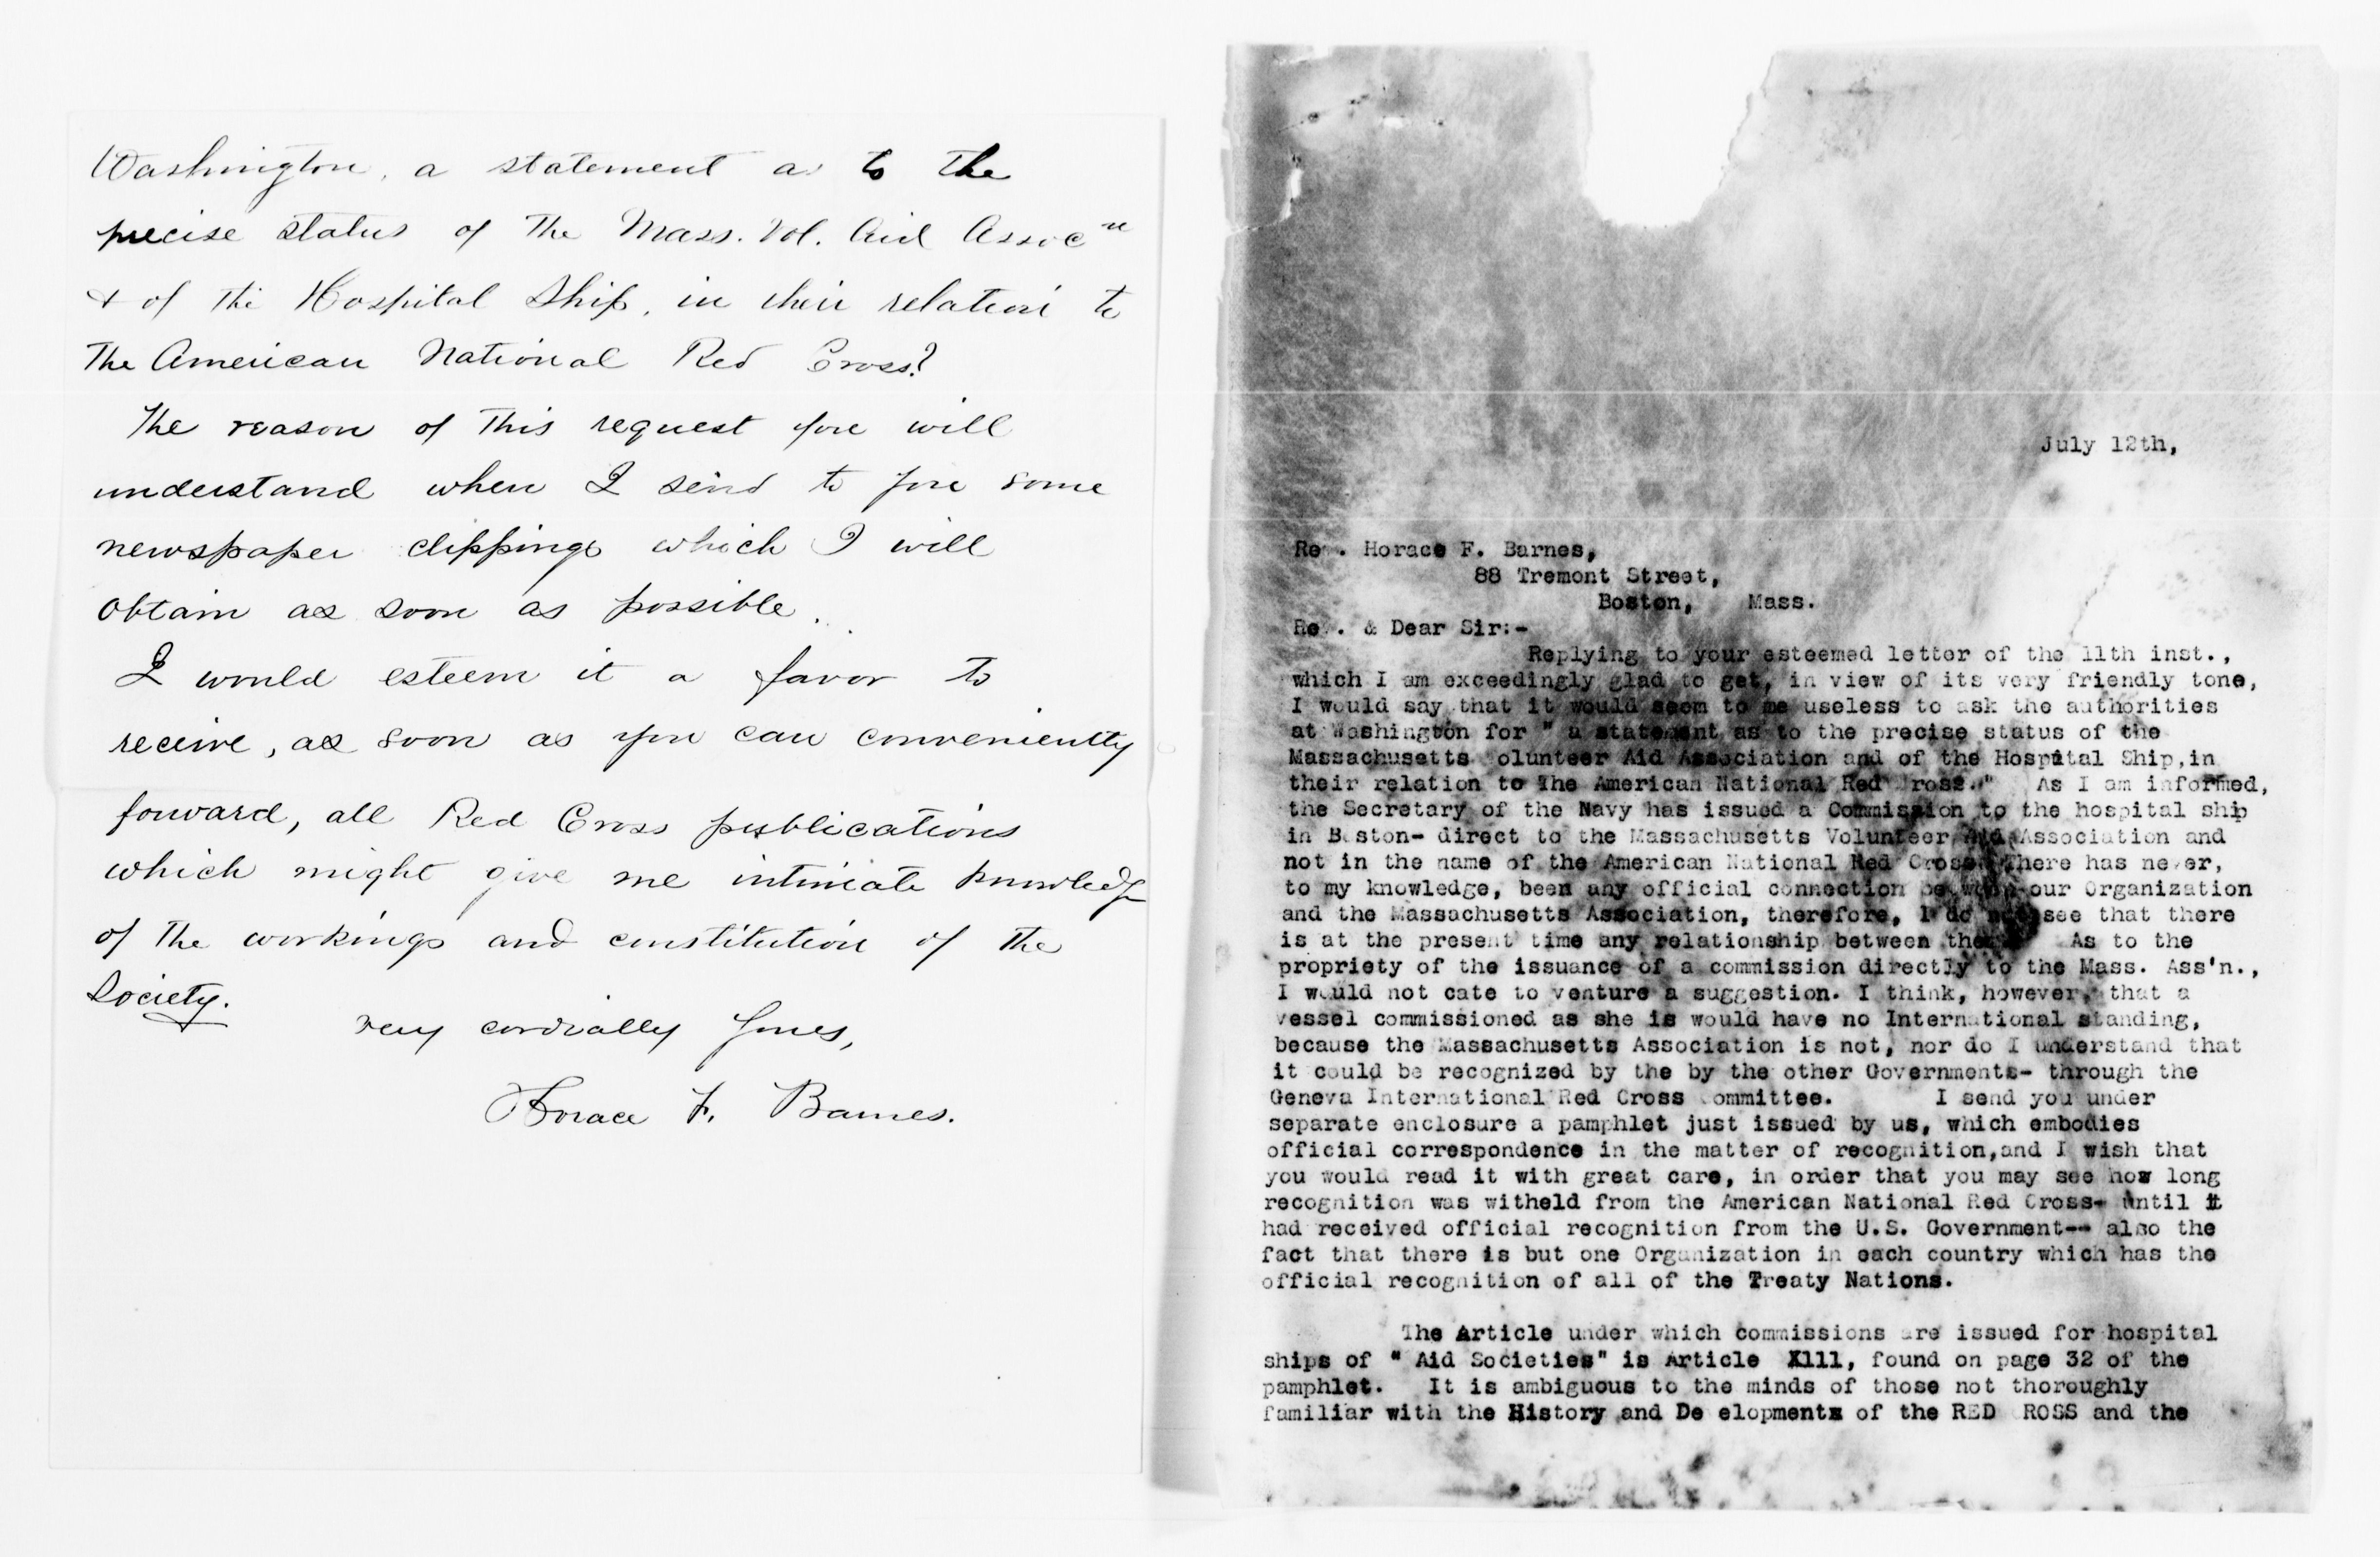 Washington, a statement as to the
precise status of the Mass. Vol. Aid Assocn
& of the Hospital Ship, in their relation to
the American National Red Cross?
The reason of this request you will
understand when I send to you some
newspaper clippings which I will
obtain as soon as possible.
I would esteem it a favor to
receive, as soon as you can conveniently
forward, all Red Cross publications
which might give me intimate knowledge
of the workings and constitution of the
Society.
Very cordially yours,
Horace F. Barnes.
July 12th,
Re . Horace F. Barnes,
88 Tremont Street,
Boston, Mass.
Re . & Dear Sir:-
Replying to your esteemed letter of the 11th inst.,
which I am exceedingly glad to get, in view of its very friendly tone,
I would say that it would seem to me useless to ask the authorities
at Washington for " a statement as to the precise status of the
Massachusetts olunteer Aid Association and of the Hospital Ship,in
their relation to The American National Red ross." As I am informed,
the Secretary of the Navy has issued a Commission to the hospital ship
in Boston- direct to the Massachusetts Volunteer Aid Association and
not in the name of the American National Red Cross. There has never,
to my knowledge, been any official connection between our Organization
and the Massachusetts Association, therefore, I do not see that there
is at the present time any relationship between them. As to the
propriety of the issuance of a commission directly to the Mass. Ass'n.,
I would not cate to venture a suggestion. I think, however, that a
vessel commissioned as she is would have no International standing,
because the Massachusetts Association is not, nor do I understand that
it could be recognized by the by the other Governments- through the
Geneva International Red Cross ommittee. I send you under
separate enclosure a pamphlet just issued by us, which embodies
official correspondence in the matter of recognition,and I wish that
you would read it with great care, in order that you may see how long
recognition was witheld from the American National Red Cross- until it
had received official recognition from the U.S. Government-- also the
fact that there is but one Organization in each country which has the
official recognition of all of the Treaty Nations.
The Article under which commissions are issued for hospital
ships of " Aid Societies" is Article Xlll, found on page 32 of the
pamphlet. It is ambiguous to the minds of those not thoroughly
familiar with the History and De elopments of the RED ROSS and the